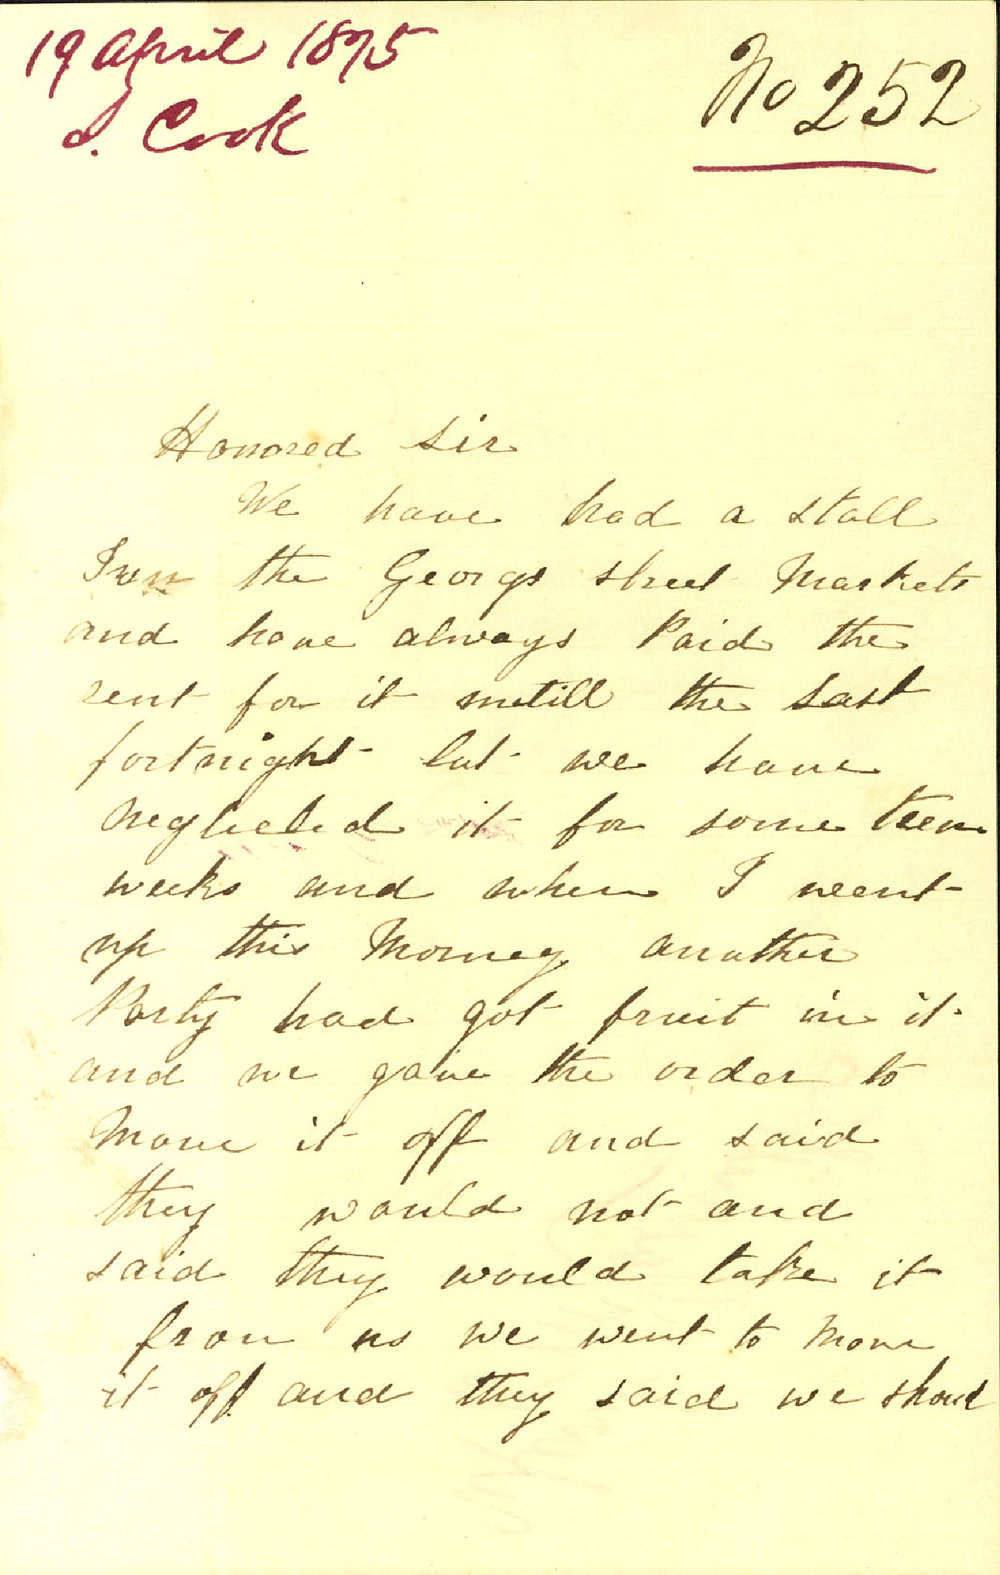 19 April 1875
S. Cook
No 252
Honored Sir
We have had a stall
the Georgs street Markets
and have always Paid the
rent for it untill the Last
fortnight but we have
Neglected it for some
weeks and when I went
up this Morneg another
Party had got fruit in it
and we gave the order to
Move it off and said
they would not and
said they would take it
from us we went to Move
it off and they said we shoul